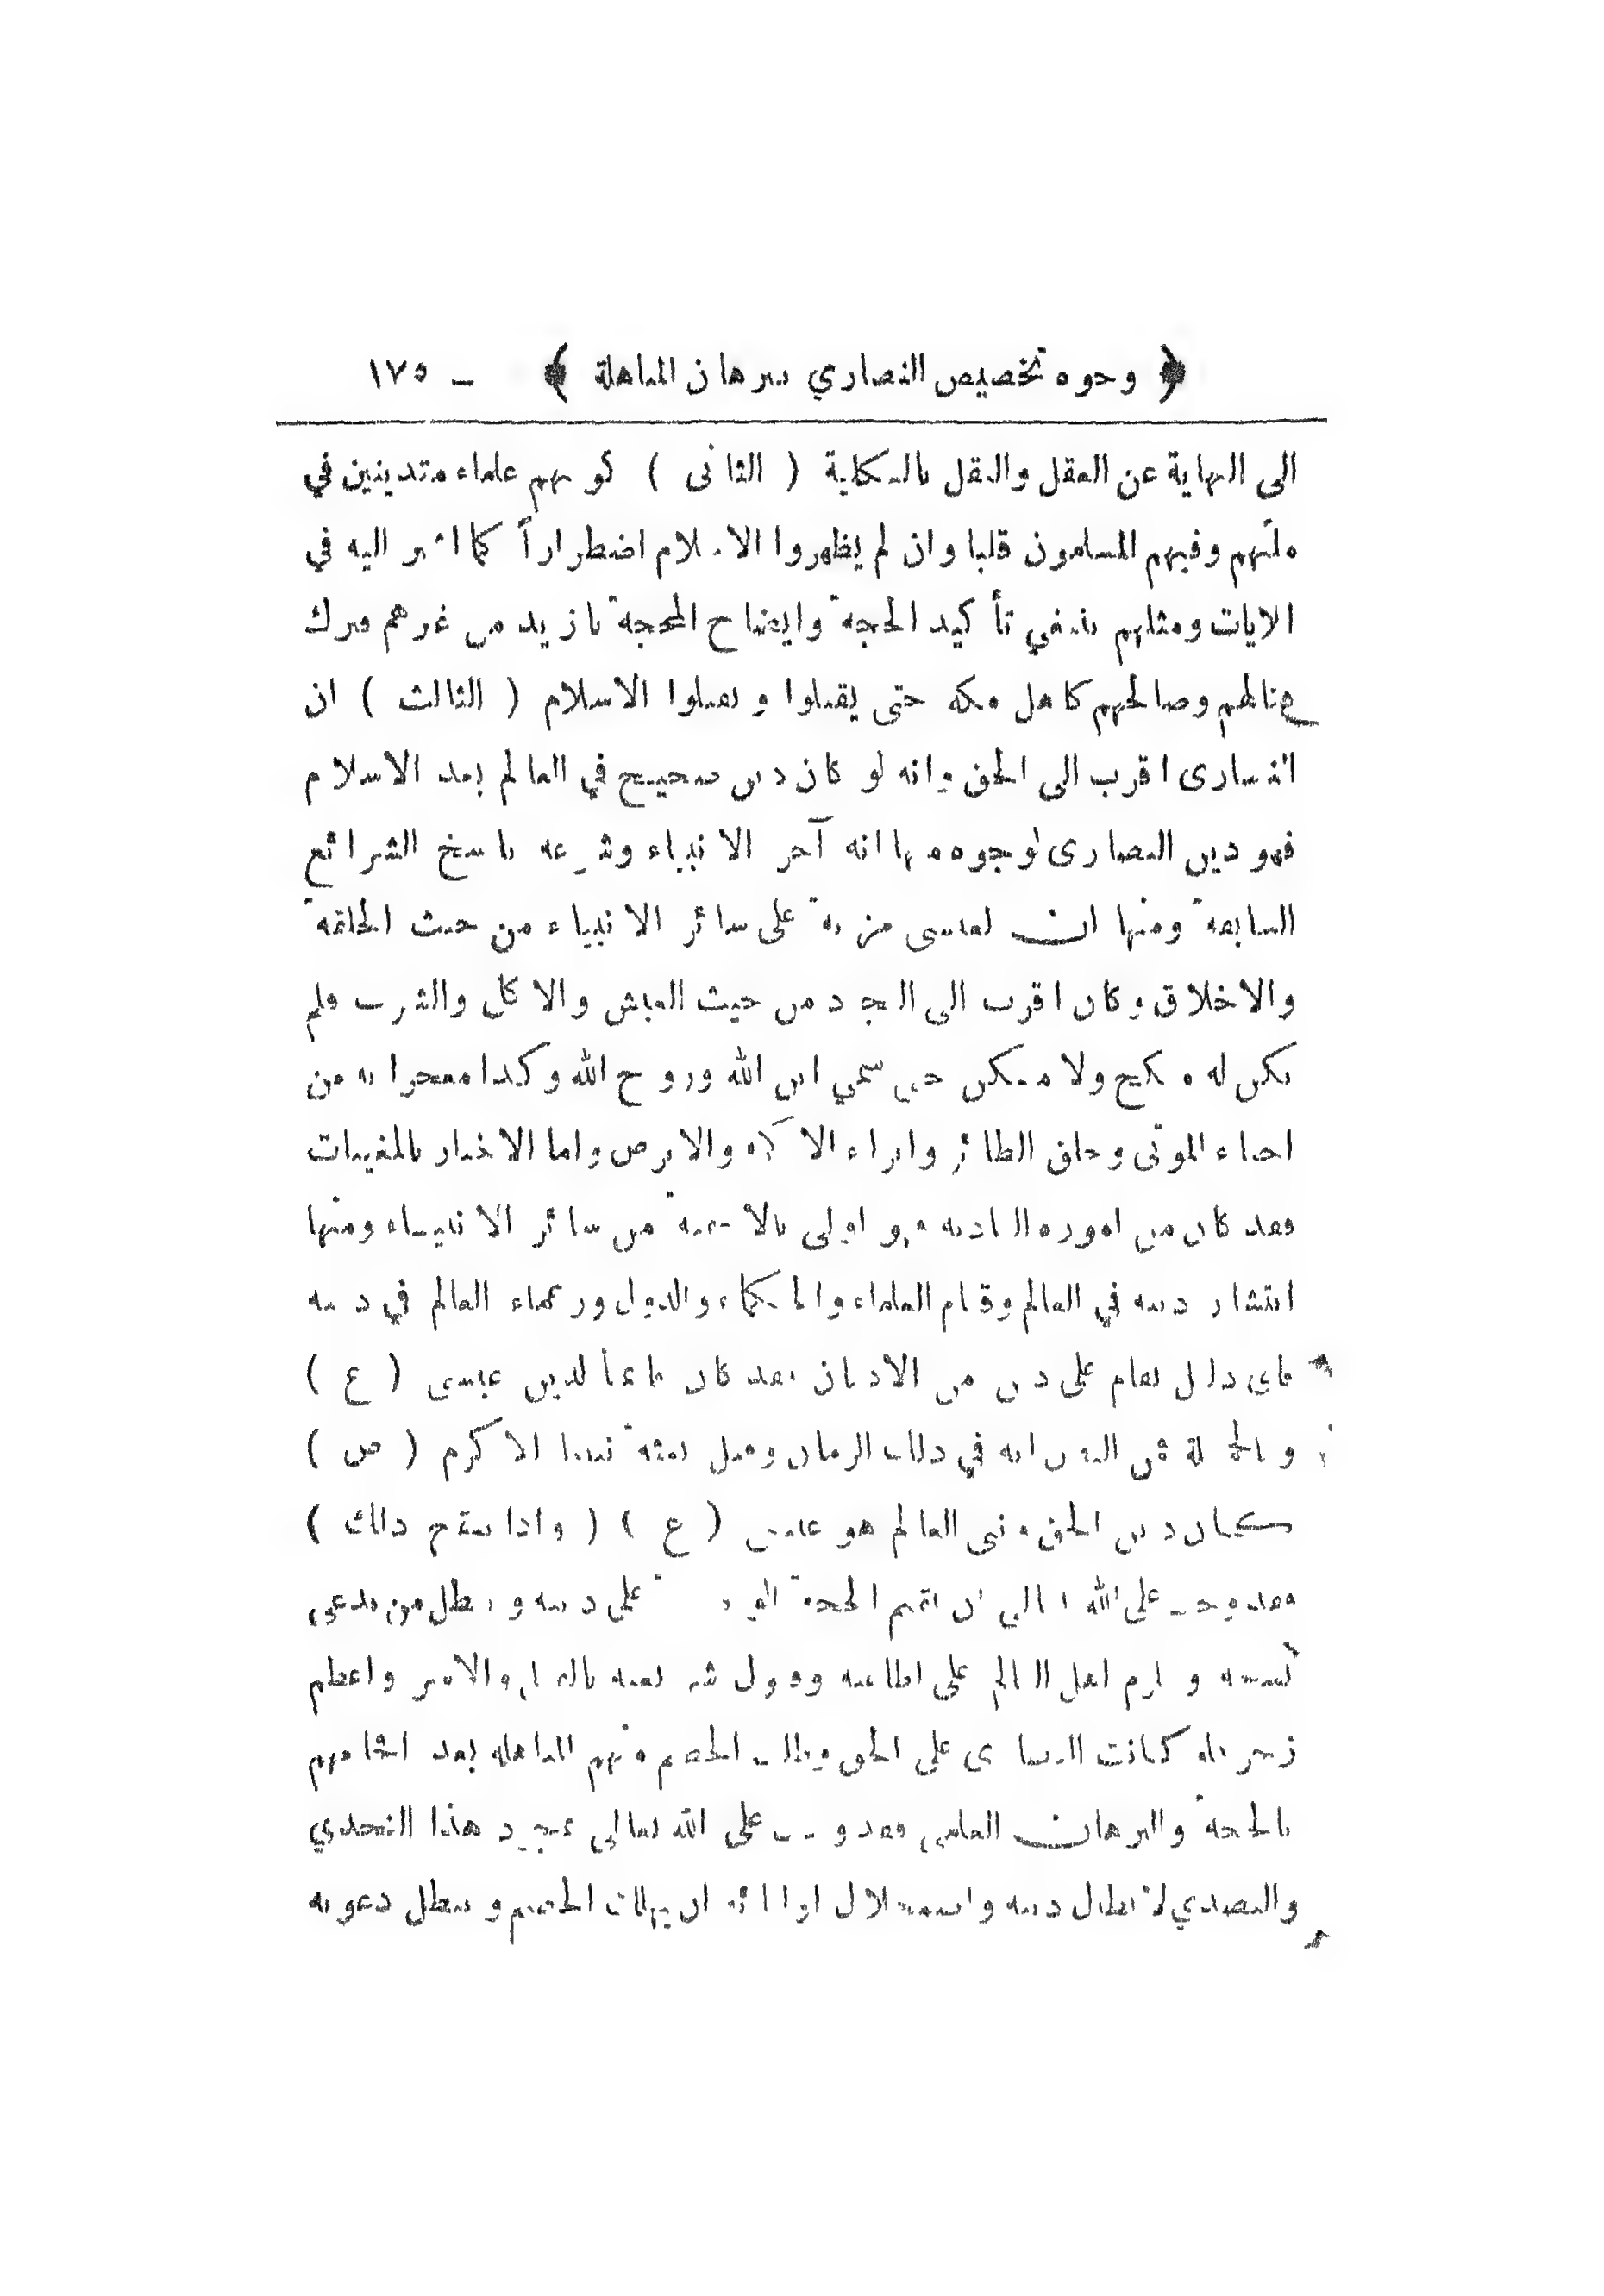 ﴿ وجوه تخصيص النصاري ببرهان المباهلة ﴾ ـ ١٧٥
الى النهاية عن العقل والنقل بالكلية ( الثانى ) كونهم علماء متدينين في
ملتهم وفيهم المسلمون قلبا وان لم يظهروا الاسلام اضطراراً كما اشير اليه في
الايات ومثلهم ينبغي تأكيد الحجة وايضاح المحجة بازيد من غيرهم فترك
وصالحهم كاهل مكه حتى يقبلوا الاسلام ( الثالث ) ان
النصارى اقرب الى الحق وانه لو كان دين صحيح في العالم بعد الاسلام
فهو دين النصارى لوجوه منها انه آخر الانبياء وشرعه ناسخ الشرائع
السابقة ومنها ان لعيسى مزية على سائر الانبياء من حيث الخلقة
والاخلاق وكان اقرب الى التجرد من حيث العيش والاكل والشرب فلم
يكن له منكح ولا مسكن حتى سمي ابن الله وروح الله وكذا معجزاته من
احياء الموتى وخلق الطائر وابراء الاكمه والابرص واما الاخبار بالمغيبات
فقد كان من اموره العادية فهو اولى من سائر الانبياء ومنها
انتشار دينه في العالم وقيام العلماء والحكماء والدول وزعماء العالم في دينه
فاى دليل يقام على دين من الاديان فقد كان قائماً لدين عيسى ( ع )
وبالجملة في ذلك الزمان وقبل بعثة نبينا الاكرم ( ص )
دين الحق ونبى العالم هو عيسى ( ع ) ( واذا ذلك )
فقد وجب على الله تعالى ان يتمم الحجة على دينه ويبطل من يدعى
نسخه ويلزم اهل العالم على اطاعته وقبول شريعته والامر واعظم
زجر فلو كانت النصارى على الحق وطلب الخصم منهم المباهلة بعد
بالحجة والبرهان العلمى فقد وجب على الله تعالى هذا التحدي
والتصدي لابطال دينه ان يهلك الخصم ويبطل دعوته